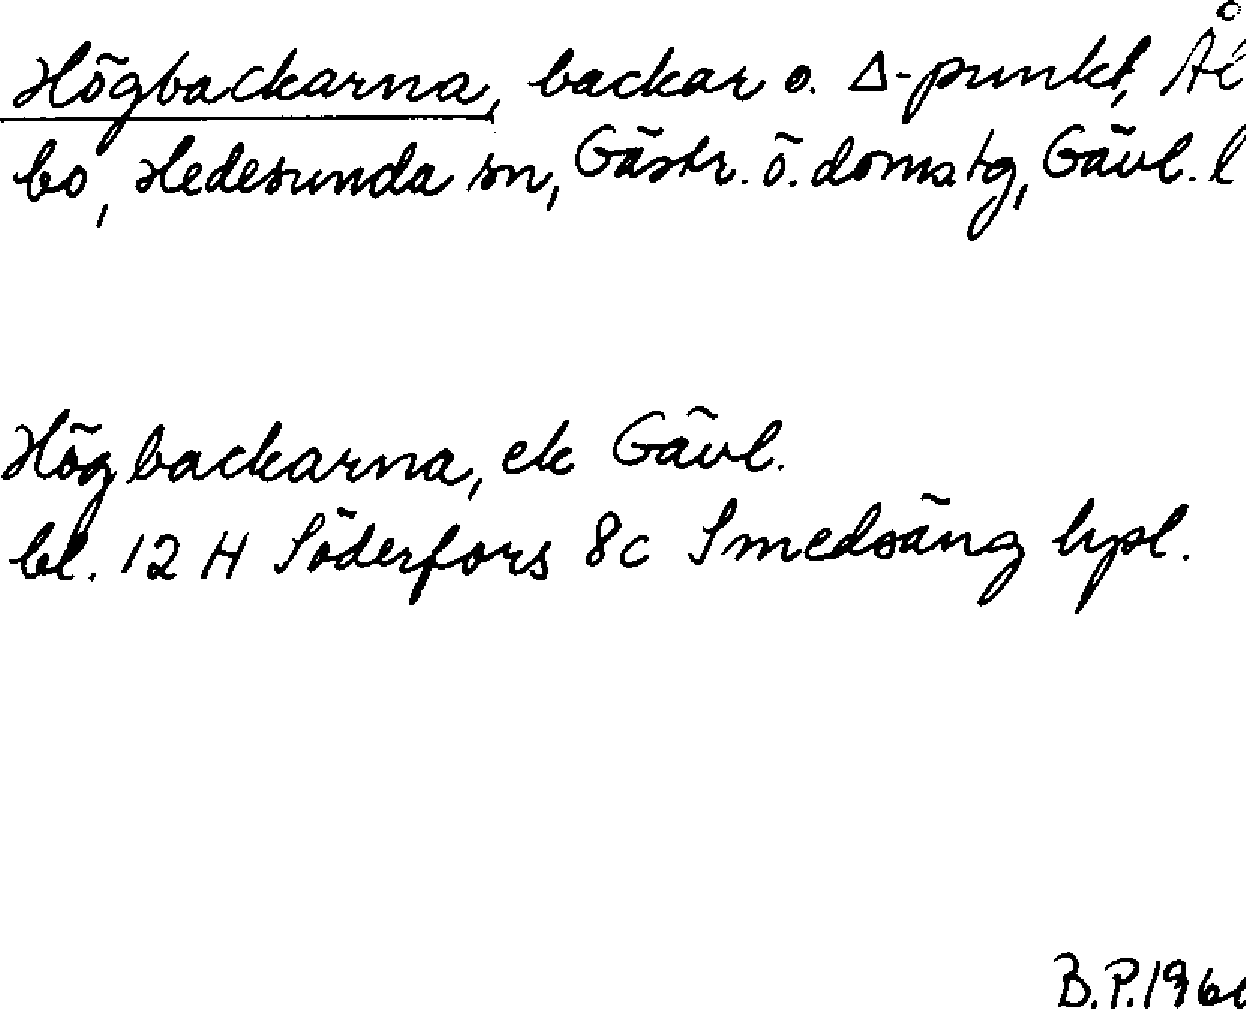 Högbackarna, backar o. Δ-punkt, Ål
bo, Hedesunda sn, Gästr. ö. domstg, Gävl. l
Högbackarna, ek Gävl.
bl. 12 H Söderfors 8c Smedsäng hpl.
B.P.